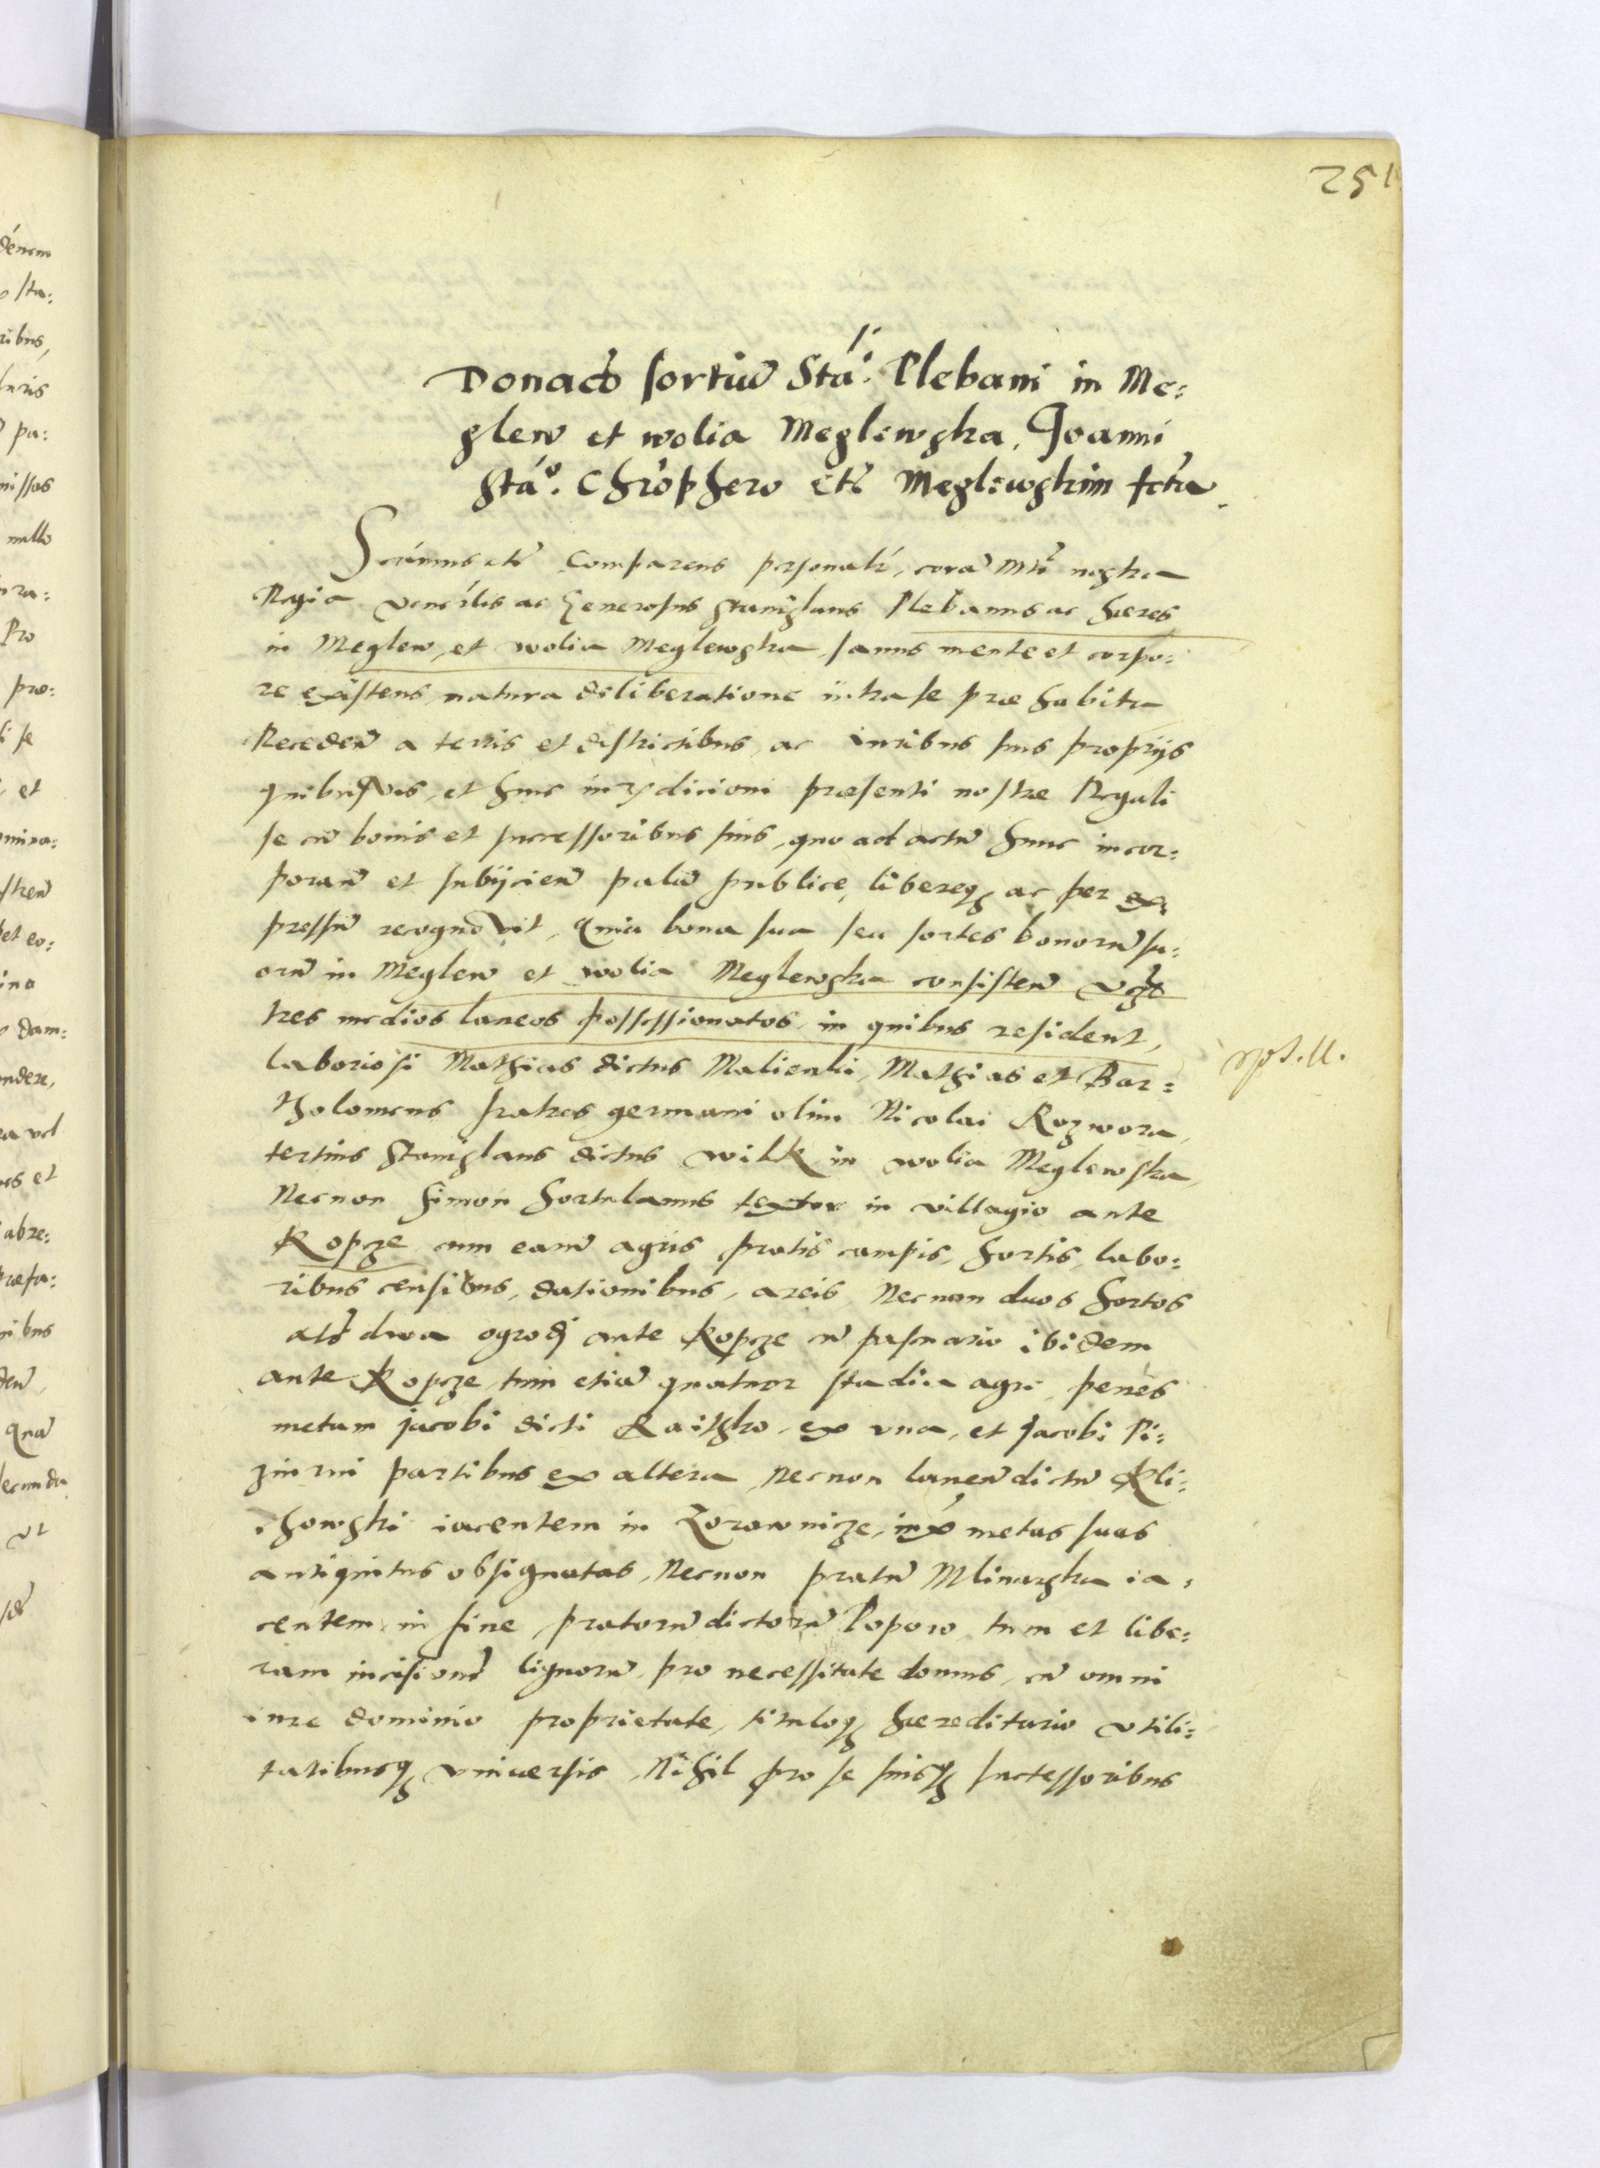 251
Donaĉo sortiũ Stai. Plebani in Me:
glew et wolia Meglewska, Joanni
Stão. Chrõphero etĉ Meglewskim fcta.
Sigismundus etĉ Comparens personalr, corã Mte nostra
Regia Vencilis ac Generosus Stanislaus Plebanus ac hæres
in Meglew, et wolia Meglewska, sanus mente et corpo:
re existens, natura deliberatione intra se præhabita
Receden̄ a terris et districtibus, ac iuribus suis proprijs
quibusvis, et huic iurisdicioni præsenti nostræ Regali
se cũ bonis et successoribus suis, quo ad actũ hunc incor:
poran̄ et subijcien̄ palã publice, libereq3 ac per ex:
pressũ recognovit, Quia bona sua seu sortes bonorũ su:
orũ in Meglew et wolia Meglewska consisten̄ vcz
tres medios laneos possessionatos, in quibus resident,
laboriosi Mathias dictus Malienki, Mathias et Bar:
tholomeus fratres germani olim Nicolai Rozwora,
tertius Stanislaus dictus wilk in wolia Meglewska,
Necnon Simon hortulanus textor in villagio ante
Kopcze cum eorũ agris pratis campis, hortis, labo:
ribus censibus, dationibus, areis Necnon duos hortos
als dwa ogrodi ante Kopcze cũ pascuario ibidem
ante Kopcze, tum etiã quatuor stadia agri, penes
metam jacobi dicti Raitzko ex vna, et jacobi Pi:
partibus ex altera, Necnon laneũ dictũ Kli:
chowski iacentem in Zorawnicze, inx metas suas
antiquitus obsignatas, Necnon pratũ Mlinarska ia:
centem in fine pratorũ dictorũ Poporo tum et libe:
ram incisionẽ lignorũ, pro necessitate domus, cũ omni
iure dominio proprietate, tituloq3 hæreditario vtili:
tatibusq3 vniuersis, Nihil pro se suisq3 successoribus